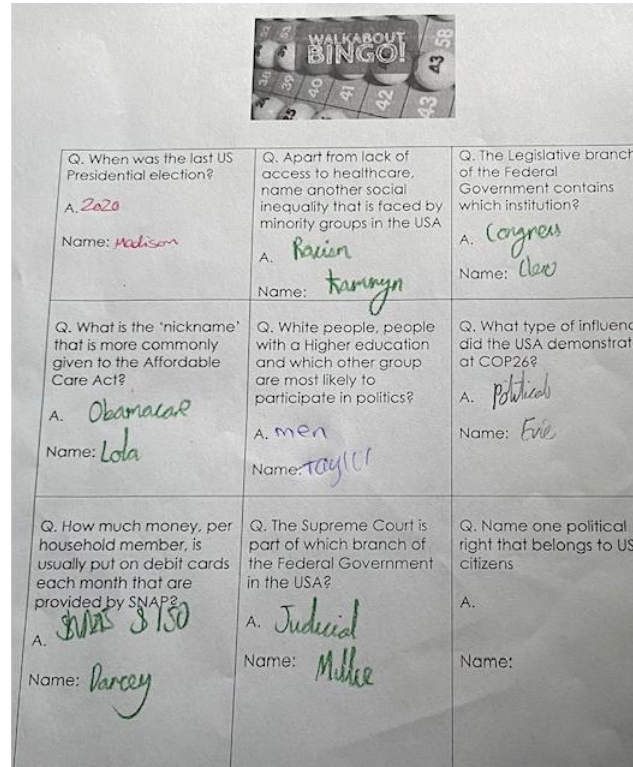 WALKABOUT
BINGO!
38 39 40 41 42 43
43 58
Q. When was the last US
Presidential election?
A. 2020
Name: Madison
Q. Apart from lack of
access to healthcare,
name another social
inequality that is faced by
minority groups in the USA
A. Racism
Name:
Q. The Legislative branch
of the Federal
Government contains
which institution?
A. Congress
Name: Cleo
Q. What is the 'nickname'
that is more commonly
given to the Affordable
Care Act?
A. Obamacare
Name: Lola
Q. White people, people
with a Higher education
and which other group
are most likely to
participate in politics?
A. men
Name: Taylor
Q. What type of influenc
did the USA demonstrat
at COP26?
A. Political
Name: Evie
Q. How much money, per
household member, is
usually put on debit cards
each month that are
provided by SNAP?
A. $150
Name: Darcey
Q. The Supreme Court is
part of which branch of
the Federal Government
in the USA?
A. Judicial
Name: Millie
Q. Name one political
right that belongs to US
citizens
A.
Name: